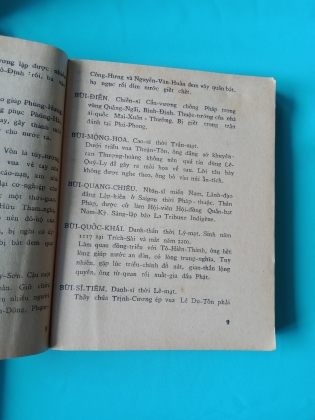 ương lập được
Định rồi, bạ
giáp Phùng-Hưng
ho nước ta.
Vốn là tay
vua về tế
Hữu
Sơn. Căn
Giữ chức
nhiều người
-Dũng, Phục
8
Công-Hưng và Nguyễn-Văn-Huân đem vây quân bắt,
hạ ngục rồi dìm nước giết chết.
BÙI-ĐIỀN. Chiến-sĩ Cần-vương chống Pháp trong
vùng Quảng-Ngãi, Bình-Định. Thuộc-tướng của nhà
ái-quốc Mai-Xuân-Thưởng. Bị giết trong trận
đánh tại Phú-Phong.
BÙI-MỘNG-HOA. Cao-sĩ thời Trần-mạt.
Dưới triều vua Thuận-Tôn, ông dâng sớ khuyên-
can Thượng-hoàng không nên quá tin dùng Lê-
Quý-Ly để gây ra mối họa về sau. Lời tâu bày
không được nghe theo, ông bỏ vào núi ẩn-tích.
BÙI-QUANG-CHIÊU. Nhân-sĩ miền Nam, Lãnh-đạo
đảng Lập-hiến ở Saigon thời Pháp-thuộc. Thân
Pháp, được cử làm Hội-viên Hội-đồng Quản-hạt
Nam-Kỳ. Sáng-lập báo La Tribune Indigène.
BÙI-QUỐC-KHÁI. Danh-thần thời Lý-mạt. Sinh năm
1117 tại Trích-Sài và mất năm 1201.
Làm quan đồng-triều với Tô-Hiến-Thành, ông hết
lòng giúp nước an dân, có lòng trung-nghĩa. Tuy
nhiên, gặp lúc triều-chính đồ nát, gian-thần lộng
quyền, ông từ quan rồi xuất-gia đầu Phật.
BÙI-SĨ-TIÊM. Danh-sĩ thời Lê-mạt.
Thấy chúa Trịnh-Cương ép vua Lê Dụ-Tôn phải
9